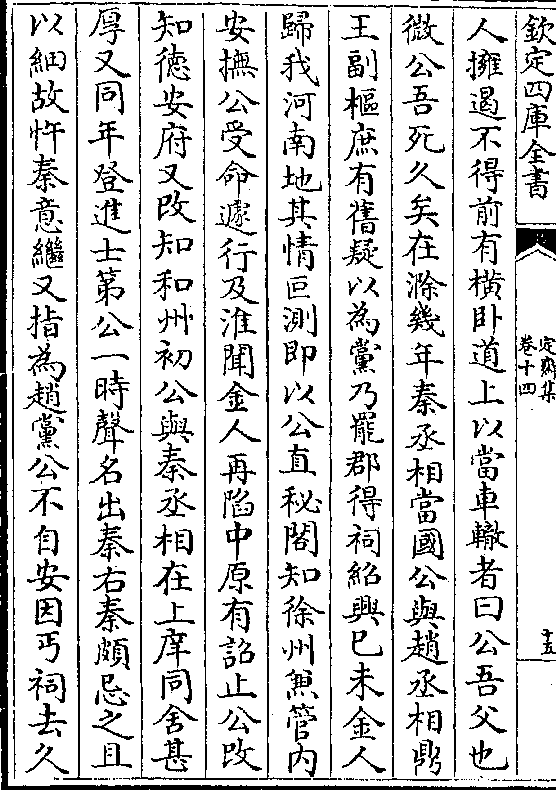 欽定四庫全書
定齋集
卷十四
十五
人擁遏不得前有橫卧道上以當車轍者曰公吾父也
微公吾死久矣在滁幾年秦丞相當國公與趙丞相鼎
王副樞庶有舊疑以為黨乃罷郡得祠紹興已未金人
歸我河南地其情叵測即以公直秘閣知徐州兼管内
安撫公受命遽行及淮聞金人再陷中原有詔止公改
知徳安府又改知和州初公與秦丞相在上庠同舍甚
厚又同年登進士第公一時聲名出秦右秦頗忌之且
以細故忤秦意繼又指為趙黨公不自安因丐祠去久